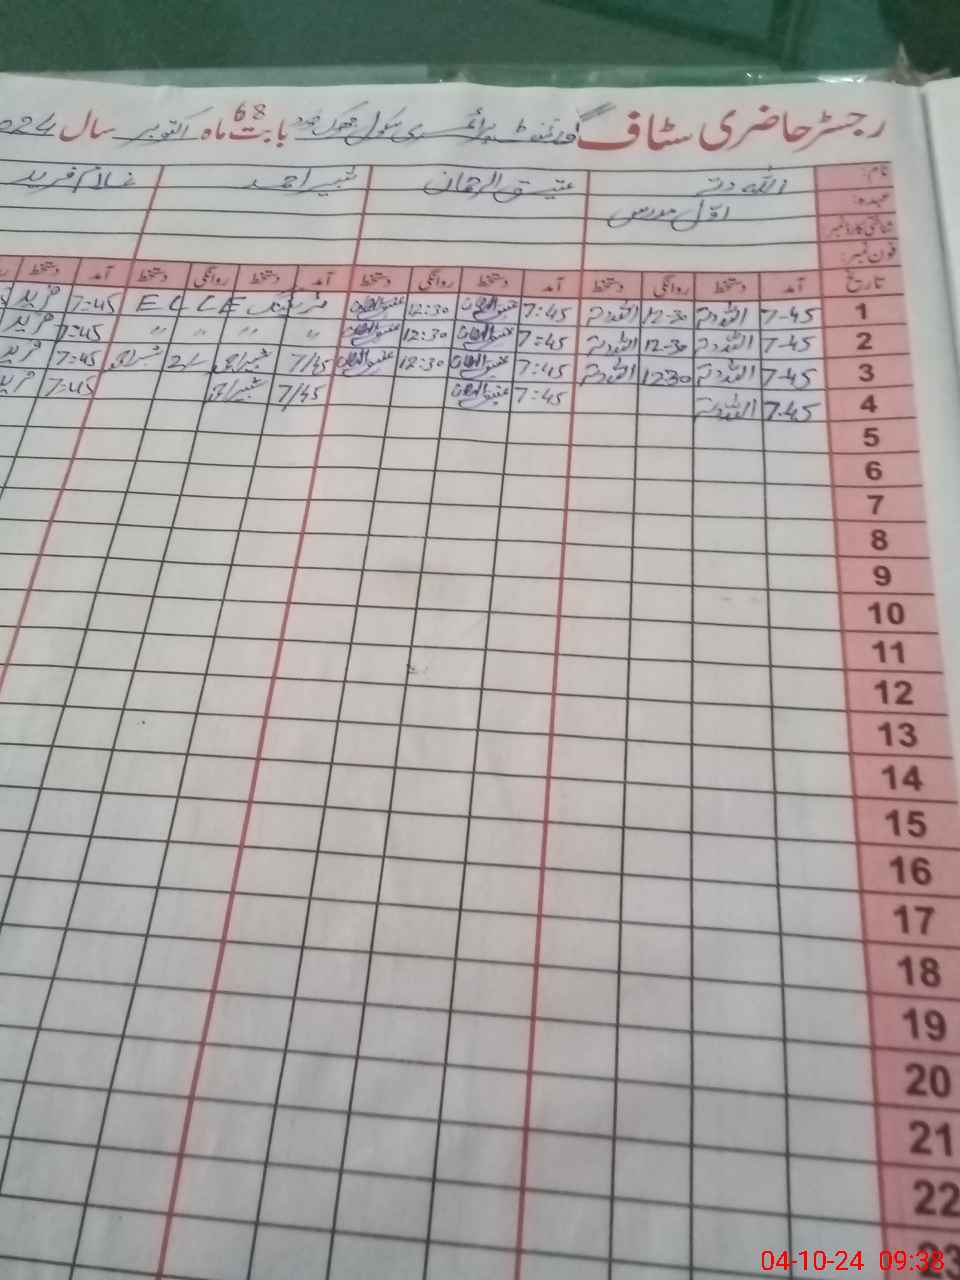 رجسٹر حاضری سٹاف گورنمنٹ پرائمری سکول بابت ماہ اکتوبر سال 2024
68
نام: اللہ دتہ عتیق الرحمان شبیر احمد غلام فرید
عہدہ: اول مدرس
شناختی کارڈ نمبر
فون نمبر:
تاریخ آمد دستخط روانگی دستخط آمد دستخط روانگی دستخط آمد دستخط روانگی دستخط آمد دستخط
1 7-45 اللہ دتہ 12-30 اللہ دتہ 7=45 عتیق الرحمان 12:30 عتیق الرحمان ٹریننگ E C C E 7=45 فرید
2 7-45 اللہ دتہ 12-30 اللہ دتہ 7=45 عتیق الرحمان 12:30 عتیق الرحمان 〃 〃 〃 〃 7=45 فرید
3 7-45 اللہ دتہ 1230 اللہ دتہ 7=45 عتیق الرحمان 12:30 عتیق الرحمان 7/45 شبیر احمد شبیر احمد 7=45 فرید
4 7-45 اللہ دتہ 7=45 عتیق الرحمان 7/45 شبیر احمد 7=45 فرید
5
6
7
8
9
10
11
12
13
14
15
16
17
18
19
20
21
22
23
04-10-24 09:38